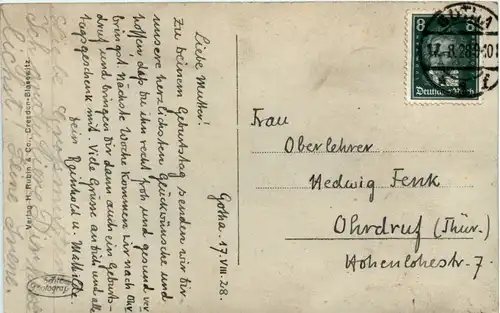 Gotha. 17. VIII. 28.
Liebe Mutter!
Zu deinem Geburtstag senden wir dir
unsere herzlichsten Glückwünsche und
hoffen daß du ihn recht froh und gesund ver
bringst. Nächste Woche kommen wir nach Ohr
druf und bringen dir dann auch ein Geburts-
tagsgeschenk mit. Viele Grüsse an dich und alle
Dein Reinhold u. Mathilde.
Verlag H. Rubin & Co., Dresden-Blasewitz
Echte Photograph
GOTHA 1
17. 8. 28 9-10
8 8
Deutsches Reich
Frau
Oberlehrer
Hedwig Fenk
Ohrdruf (Thür.)
Hohenlohestr. 7.